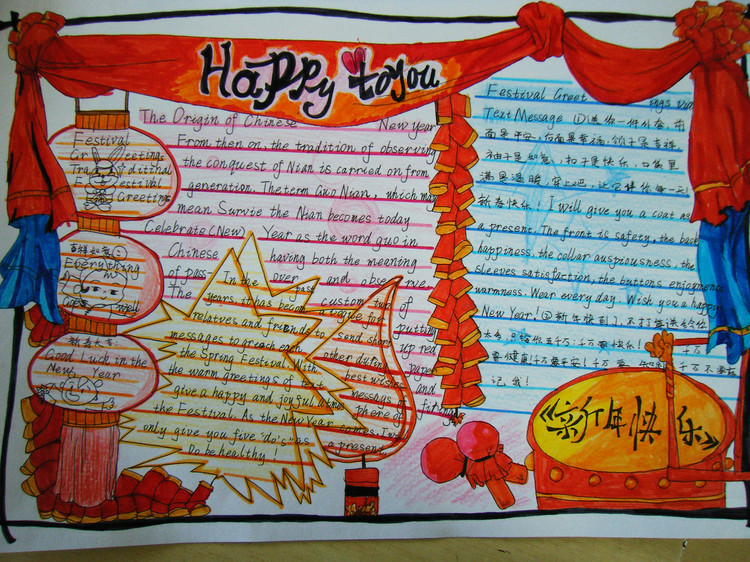 Happy to you
The Origin of Chinese New year
From then on, the tradition of observing
the conquest of Nian is carried on from
generation. The term Guo Nian, which may
mean Survie the Nian becomes today
Celebrate (New) Year as the word guo in
Chinese having both the meaning
of pass over and observe.
The custom of
putting
up red
paper
and
Festival
Greetings
Traditional
Festival
Greeting
吉祥如意
Everything
well
新春大吉
Good Luck in the
New Year
In the past
years, it has become
relatives and friends to send short
messages to greach each other during
the Spring Festival. With best wishes
the warm greetings of messages
give a happy and joyful atmosphere of
the Festival. As the New Year comes, I've
only give you five "do's" as a present.
Do be healthy!
Festival Greet ings via
Text Message ①送你一件外套,前
面是平安,后面是幸福,领子是吉祥
袖子是如意,扣子是快乐,口袋里
满是温暖,穿上吧,让它伴你每一天!
新春快乐 I will give you a coat as
a present. The front is safety, the back
happiness, the collar auspiciousness, the
sleeves satisfaction, the buttons enjoyment
warmness. Wear every day. Wish you a happy
New Year! ②新年快到了,不打算送给你
太多,只给你五千万:千万要快乐! 千万
要健康!千万要平安!千万要 千万不要忘
记我!
《新年快乐》